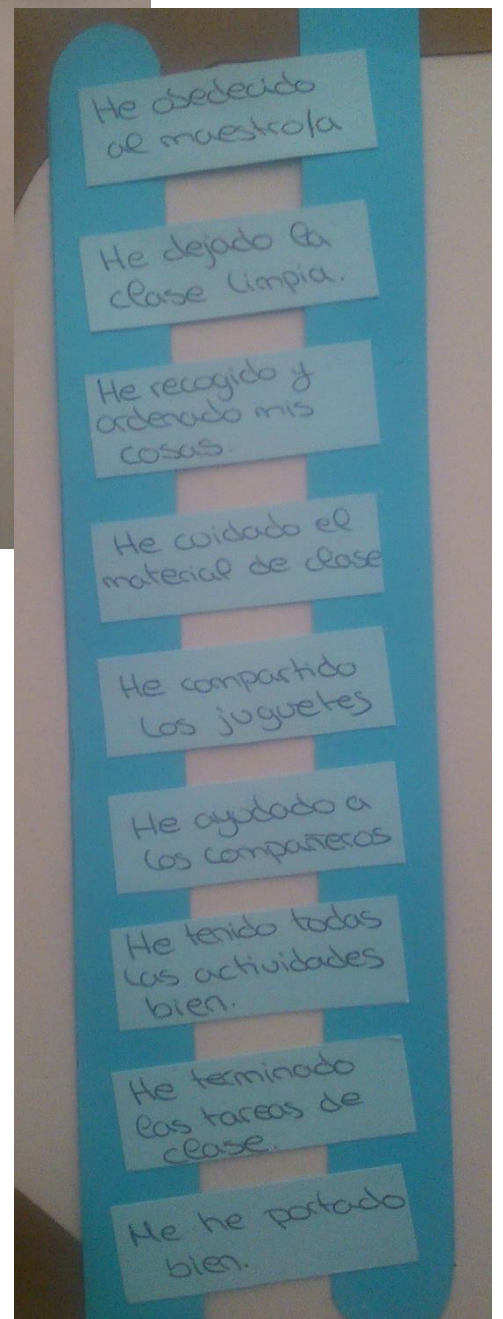 He obedecido
al maestro/a
He dejado la
clase limpia.
He recogido y
ordenado mis
cosas.
He cuidado el
material de clase
He compartido
los juguetes
He ayudado a
los compañeros
He tenido todas
las actividades
bien.
He terminado
las tareas de
clase.
Me he portado
bien.